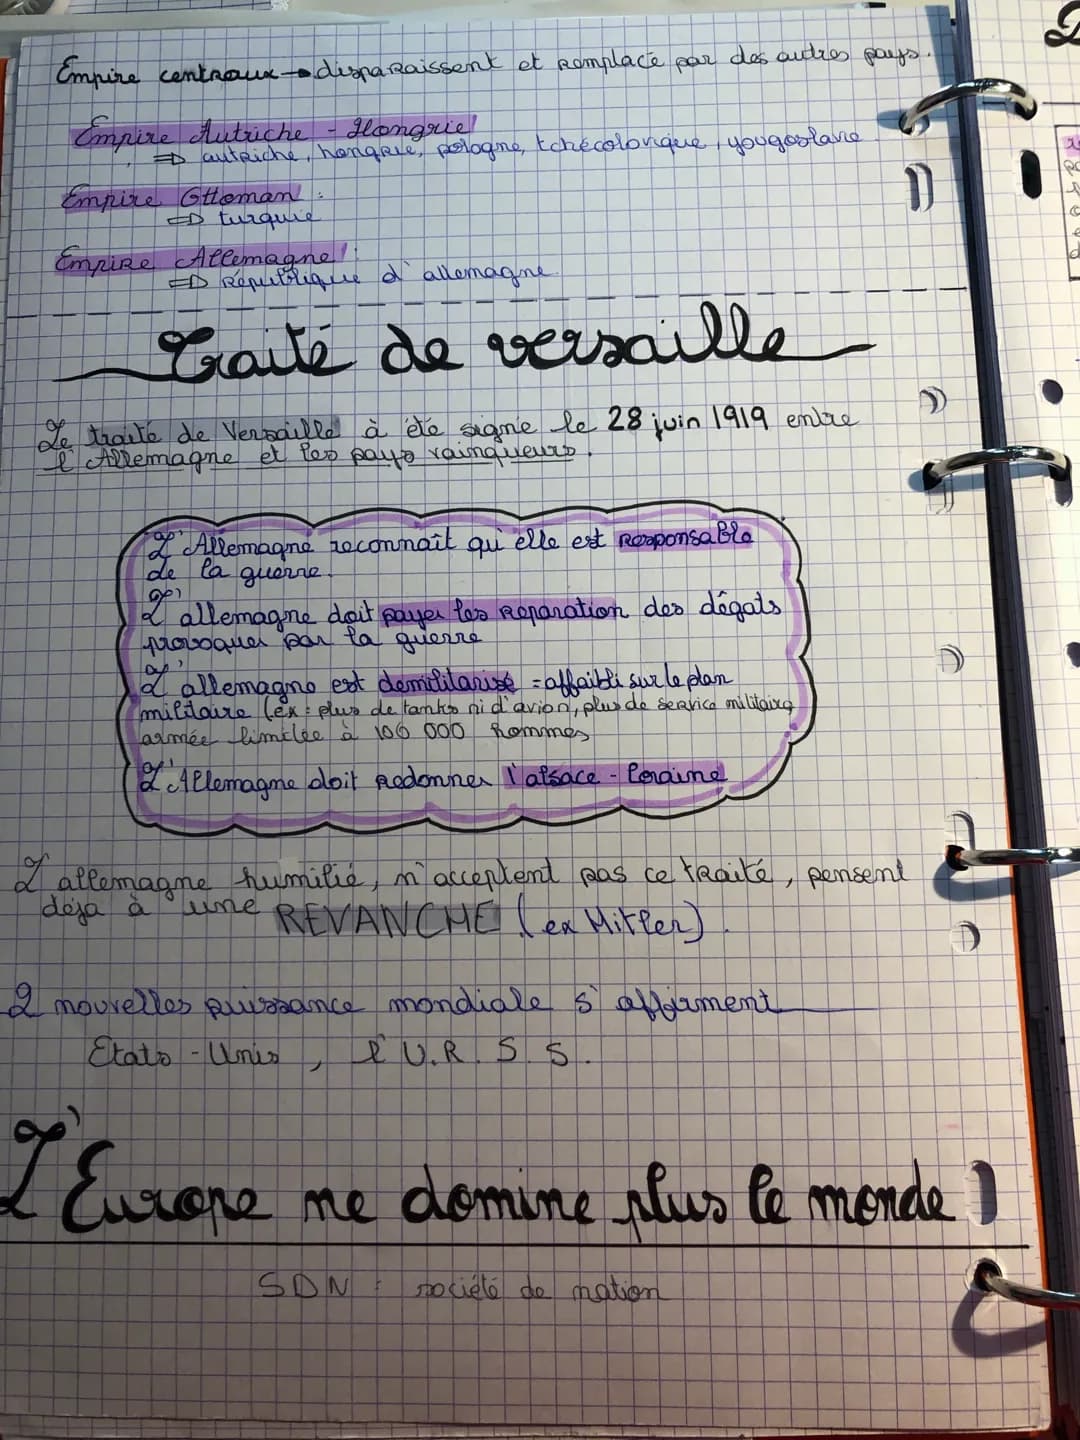 Empire centraux → disparaissent et remplacé par des autres pays.
Empire Autriche - Hongrie
⇒ autriche, hongrie, pologne, tchécolovique, yougoslavie
Empire Ottoman :
⇒ turquie
Empire Allemagne :
⇒ République d'allemagne
Traité de versaille
Le traité de Versaille à été signé le 28 juin 1919 entre
l'Allemagne et les pays vainqueurs.
L'Allemagne reconnaît qu'elle est responsable
de la guerre.
L'allemagne doit payer les réparation des dégats
provoquer par la guerre
L'allemagne est demilitarisé = affaibli sur le plan
militaire (ex : plus de tanks ni d'avion, plus de service militaire,
armée limitée à 100 000 hommes
L'Allemagne doit redonner l'alsace - loraine
L'allemagne humilié, n'acceptent pas ce traité, pensent
déja à une REVANCHE (ex Hitler).
2 nouvelles puissance mondiale s'affirment
Etats - Unis, l'U.R.S.S.
L'Europe ne domine plus le monde
SDN : société de nation